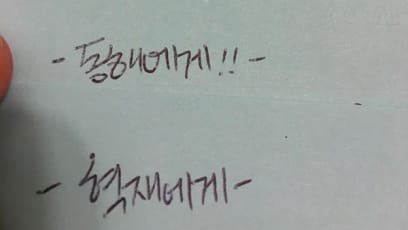 - 동해에게!! -
- 혁재에게 -